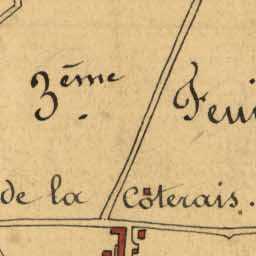 3ème Feui
de la Côterais.